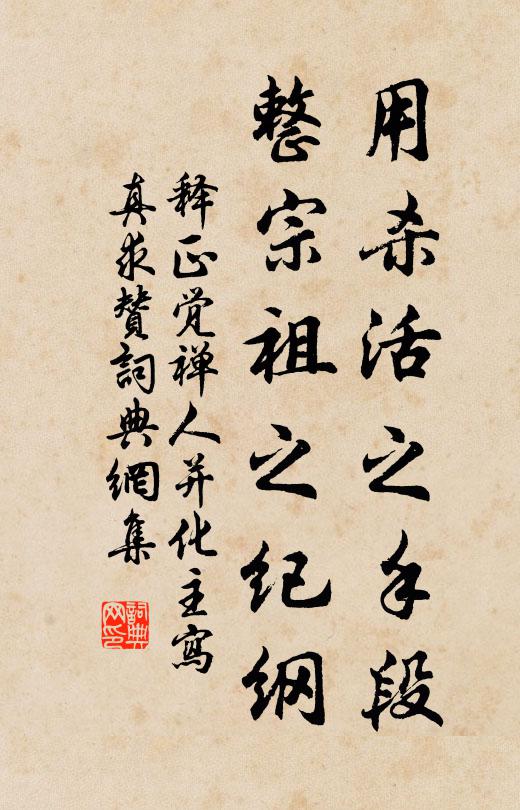 用杀活之手段
整宗祖之纪纲
释正觉禅人并化主寫
真求賛詞典網集
詞典网印